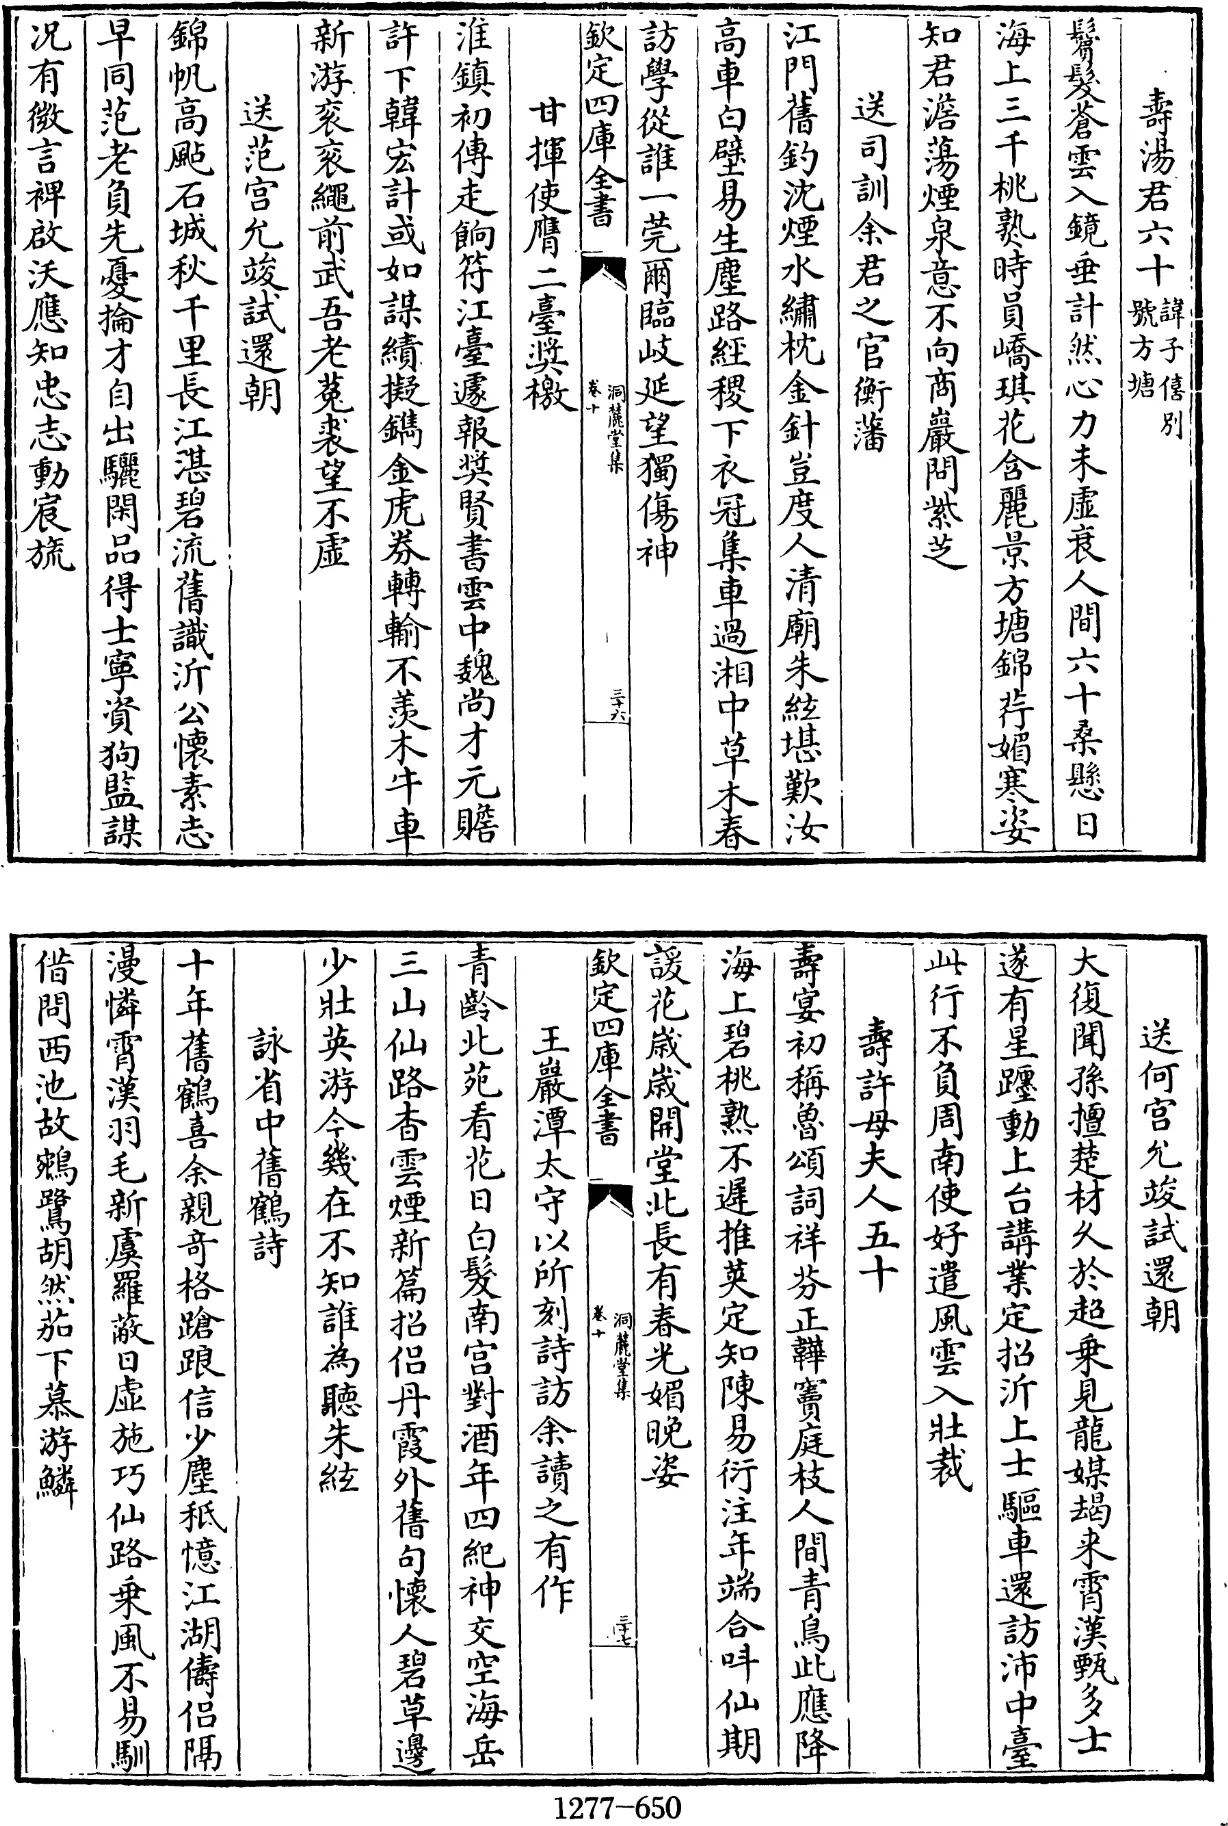 壽湯君六十諱子僖別號方塘
鬅髮蒼雲入鏡垂計然心力未虛衰人間六十桑懸日
海上三千桃熟時員嶠琪花含麗景方塘錦荇媚寒姿
知君澹蕩煙泉意不向商巖問紫芝
送司訓余君之官衡藩
江門舊釣沈煙水繡枕金針豈度人清廟朱絃堪歎汝
高車白璧易生塵路經稷下衣冠集車過湘中草木春
訪學從誰一莞爾臨岐延望獨傷神
欽定四庫全書
洞麓堂集
卷十
三十六
甘揮使膺二臺奨檄
淮鎮初傳走餉符江臺遽報奨賢書雲中魏尚才元贍
許下韓宏計或如謀績擬鐫金虎券轉輸不羨木牛車
新游衮衮繩前武吾老菟裘望不虛
送范宫允竣試還朝
錦帆高颭石城秋千里長江湛碧流舊識沂公懷素志
早同范老負先憂掄才自出驪閑品得士寧資狗監謀
况有徽言裨啟沃應知忠志動宸旒
送何宫允竣試還朝
大復聞孫擅楚材久於超乗見龍媒朅来霄漢甄多士
遂有星躔動上台講業定招沂上士驅車還訪沛中臺
此行不負周南使好遣風雲入壯裁
壽許母夫人五十
壽宴初稱魯頌詞祥芬正韡竇庭枝人間青鳥此應降
海上碧桃熟不遲推莢定知陳易衍注年端合叶仙期
諼花歲歲開堂北長有春光媚晚姿
欽定四庫全書
洞麓堂集
卷十
三十七
王巖潭太守以所刻詩訪余讀之有作
青齡北苑看花日白髮南宫對酒年四紀神交空海岳
三山仙路杳雲煙新篇招侣丹霞外舊句懷人碧草邊
少壯英游今幾在不知誰為聽朱絃
詠省中舊鶴詩
十年舊鶴喜余親奇格蹌踉信少塵秖憶江湖儔侣隔
漫憐霄漢羽毛新虞羅蔽日虛施巧仙路乗風不易馴
借問西池故鵷鷺胡然茄下慕游鱗
1277-650